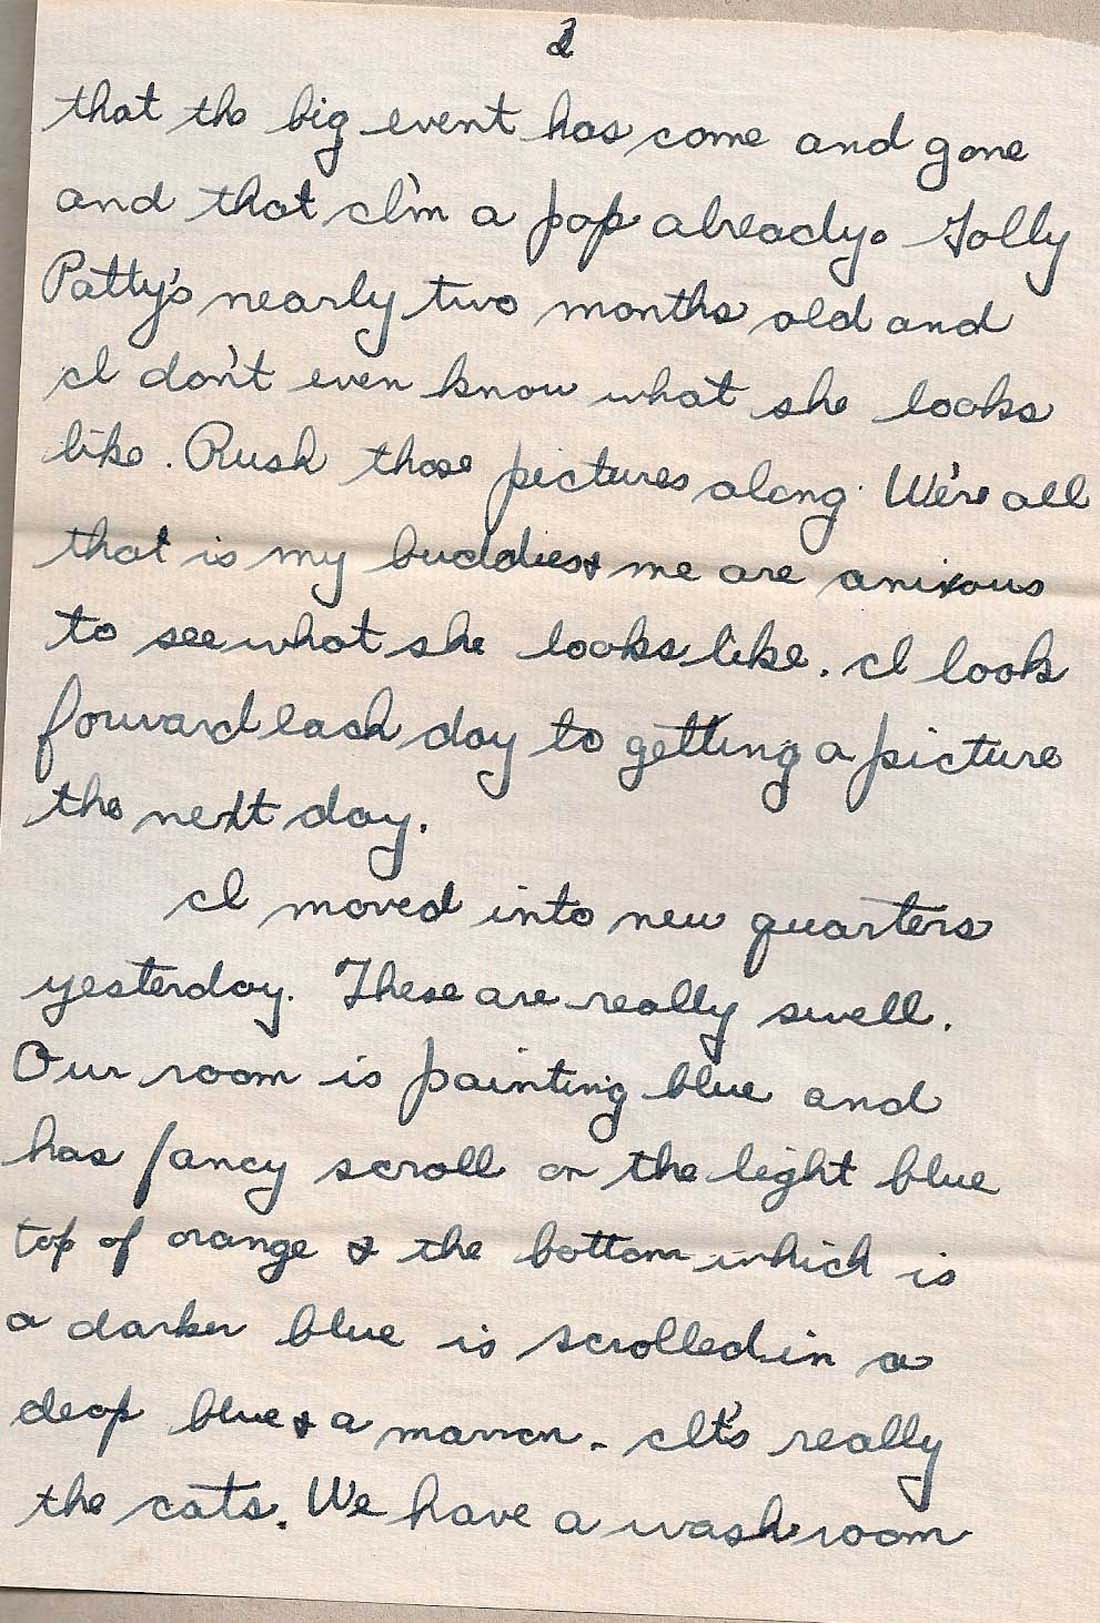 2
that the big event has come and gone
and that I'm a pop already. Golly
Patty's nearly two months old and
I don't even know what she looks
like. Rush those pictures along. We're all
that is my buddies & me are anixous
to see what she looks like. I look
forward each day to getting a picture
the next day.
I moved into new quarters
yesterday. These are really swell.
Our room is painting blue and
has fancy scroll on the light blue
top of orange & the bottom which is
a darker blue is scrolled in a
deep blue & a maroon. It's really
the cats. We have a washroom